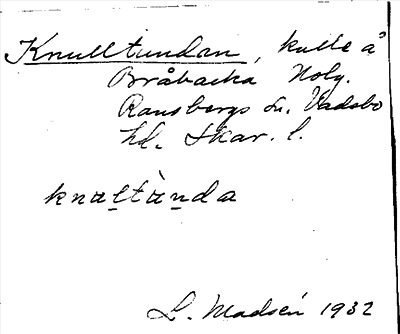 Knulltundan, kulle å
Bråbacka Nolg.
Ransbergs sn. Vadsbo
hd. Skar. l.
knaltànda
L. Madsén 1932